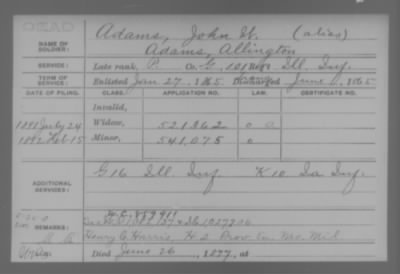 DEAD
Adams, John W. (alias)
NAME OF SOLDIER:
Adams, Allington
SERVICE: Late rank, P. Co. G, 101 Reg't Ill. Inf.
TERM OF SERVICE: Enlisted Jan 27, 1865 Discharged June, 1865
DATE OF FILING. CLASS. APPLICATION NO. LAW. CERTIFICATE NO.
Invalid,
1891 July 24 Widow, 521362 O
1892 Feb 15 Minor, 541,075 O
ADDITIONAL SERVICES:
G 16 Ill. Inf K 10 Ia Inf.
W.C. 859911
REMARKS:
Henry C. Harris, Mo. Mil
Died June 26, 1877, at